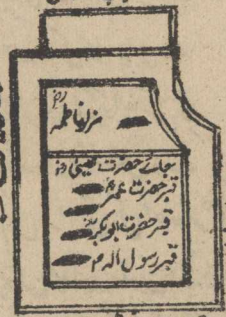 مزار فاطمہ رض
جائے حضرت عیسیٰ
قبر حضرت عمر رض
قبر حضرت ابوبکر رض
قبر رسول اللہ م